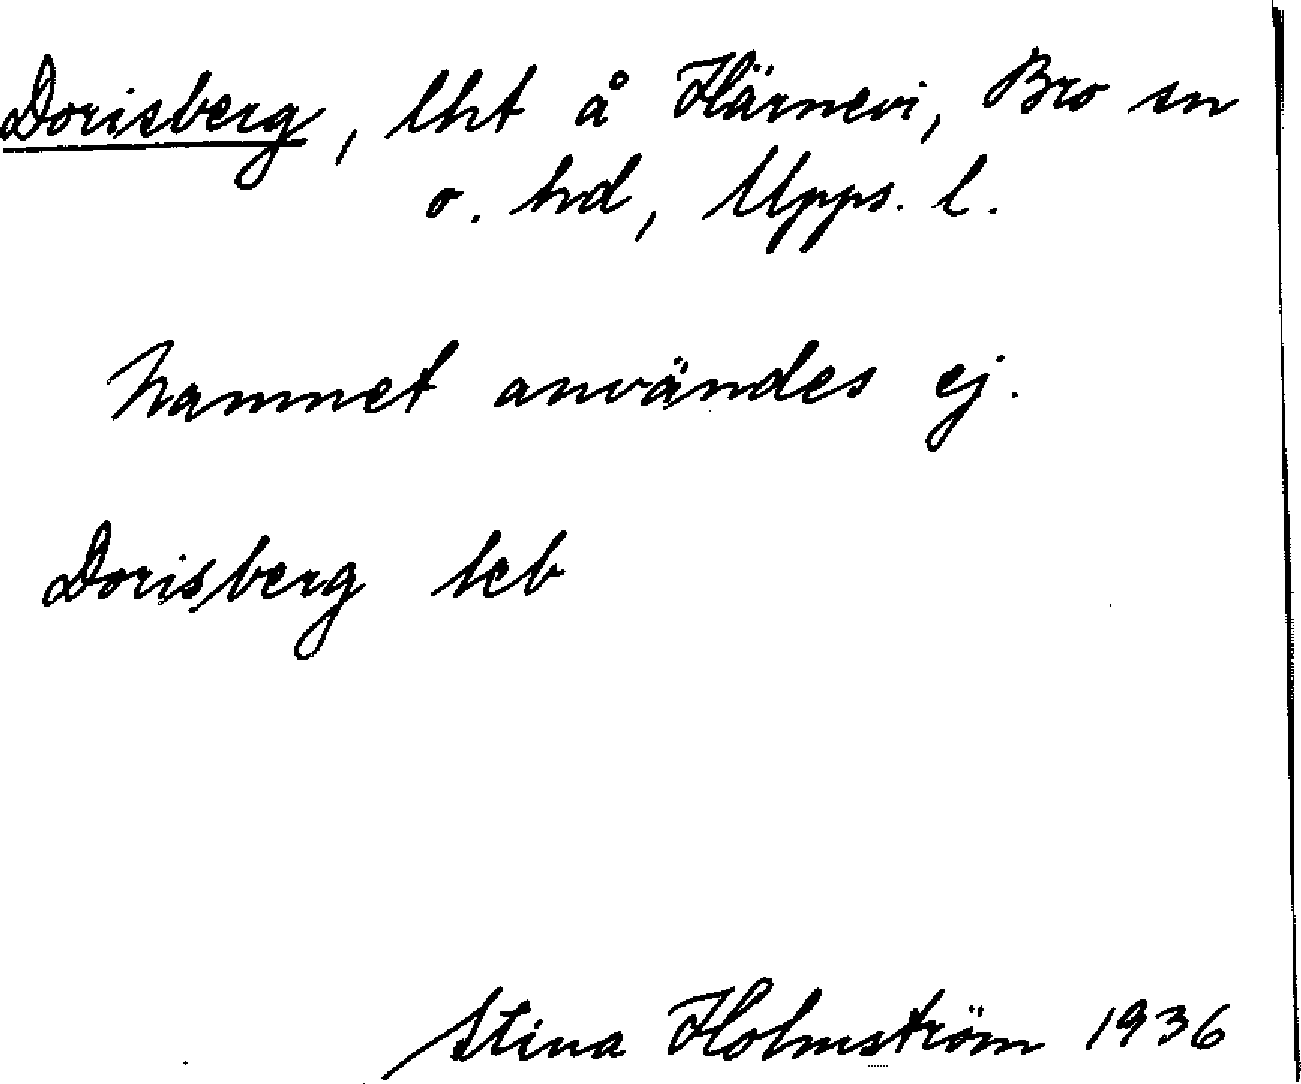 Dorisberg, lht å Härnevi, Bro sn
o. hd, Upps. l.
Namnet användes ej.
Dorisberg leb
Stina Holmström 1936